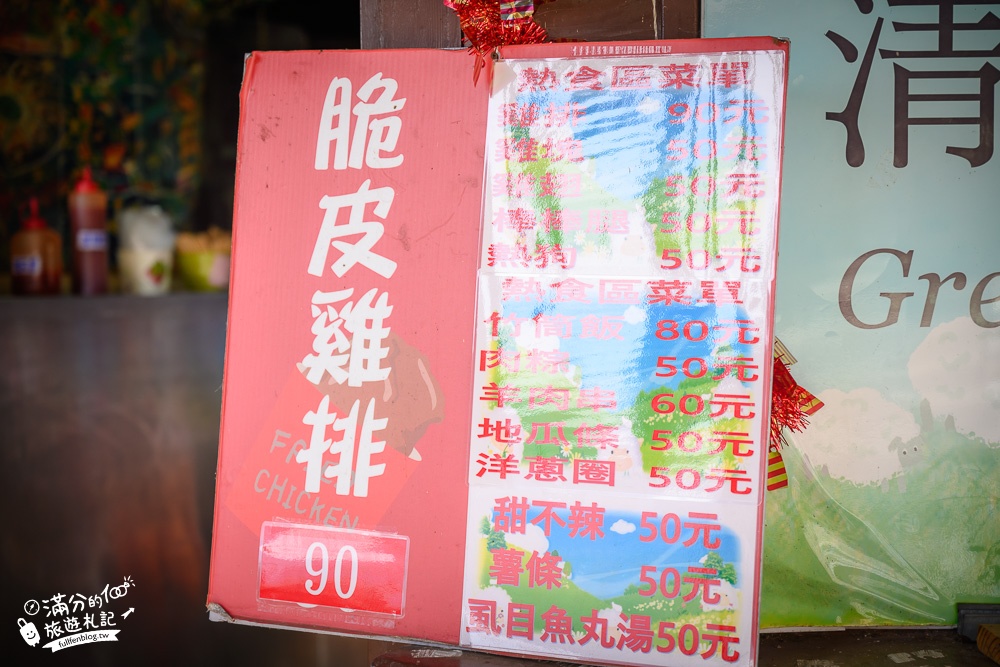 脆皮雞排
FRIED
CHICKEN
90
熱食區菜單
雞排 90元
雞塊 50元
雞翅 50元
棒棒腿 50元
熱狗 50元
熱食區菜單
竹筒飯 80元
肉粽 50元
羊肉串 60元
地瓜條 50元
洋蔥圈 50元
甜不辣 50元
薯條 50元
虱目魚丸湯50元
清
Gre
滿分的
旅遊札記
fullfenblog.tw